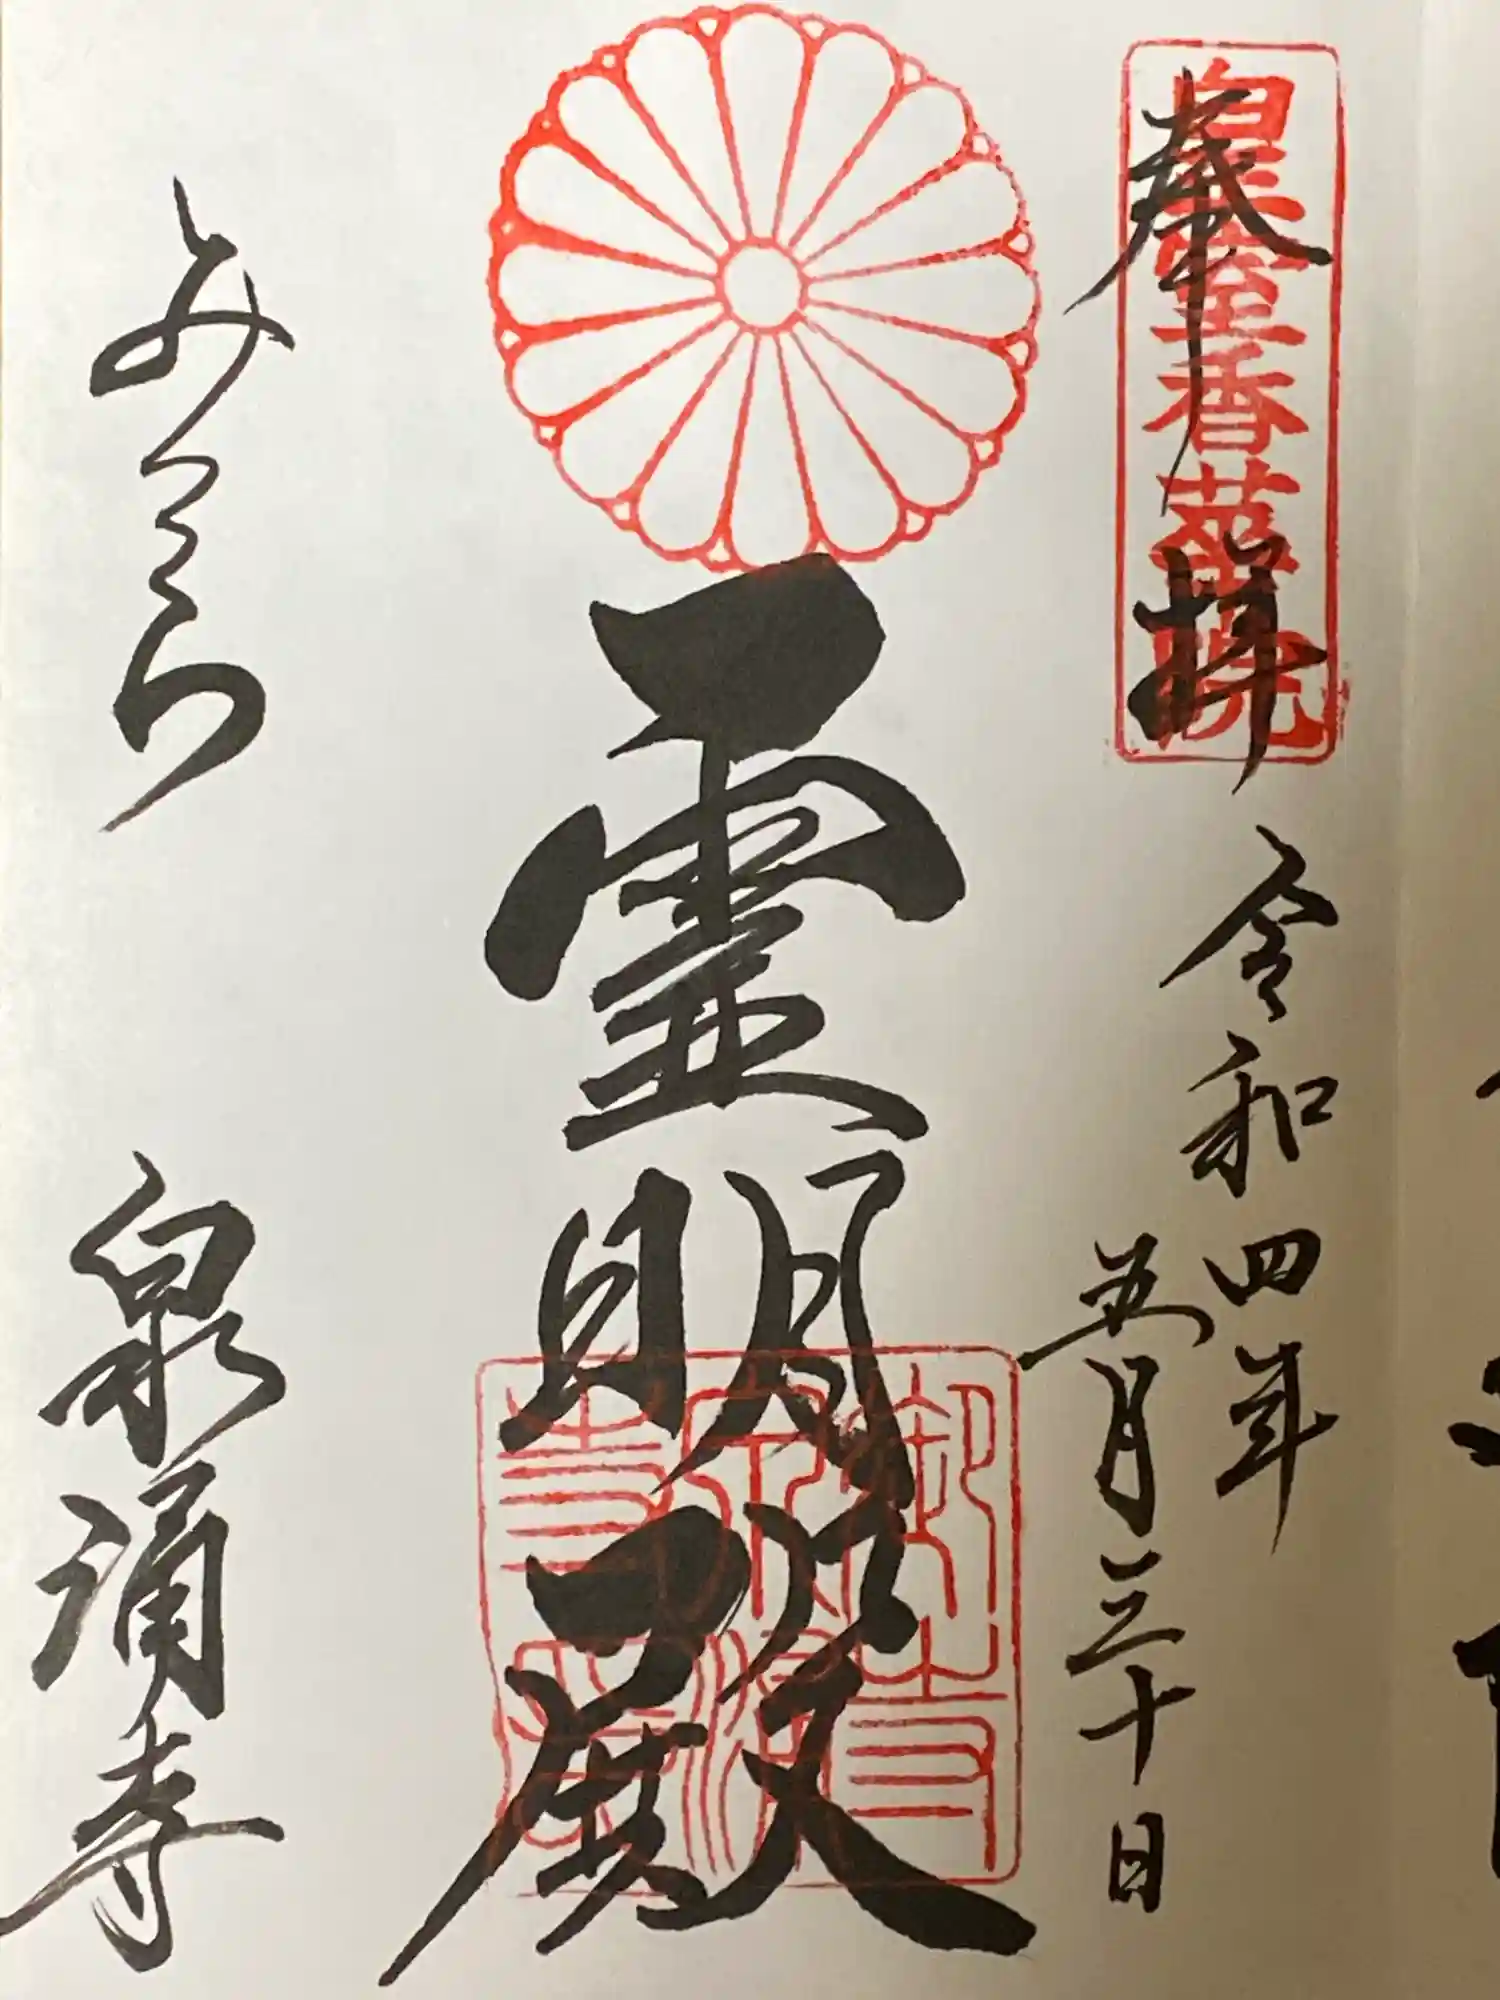 皇室香華院
奉拝
令和四年
五月三十日
霊明殿
みてら
泉涌寺